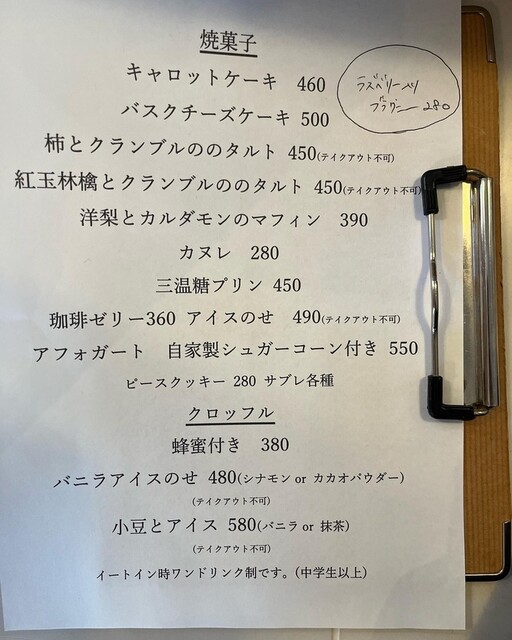 焼菓子
キャロットケーキ 460
ラズベリー入り
ブラウニー 280
バスクチーズケーキ 500
柿とクランブルののタルト 450(テイクアウト不可)
紅玉林檎とクランブルののタルト 450(テイクアウト不可)
洋梨とカルダモンのマフィン 390
カヌレ 280
三温糖プリン 450
珈琲ゼリー360 アイスのせ 490(テイクアウト不可)
アフォガート 自家製シュガーコーン付き 550
ピースクッキー 280 サブレ各種
クロッフル
蜂蜜付き 380
バニラアイスのせ 480(シナモン or カカオパウダー)
(テイクアウト不可)
小豆とアイス 580(バニラ or 抹茶)
(テイクアウト不可)
イートイン時ワンドリンク制です。(中学生以上)